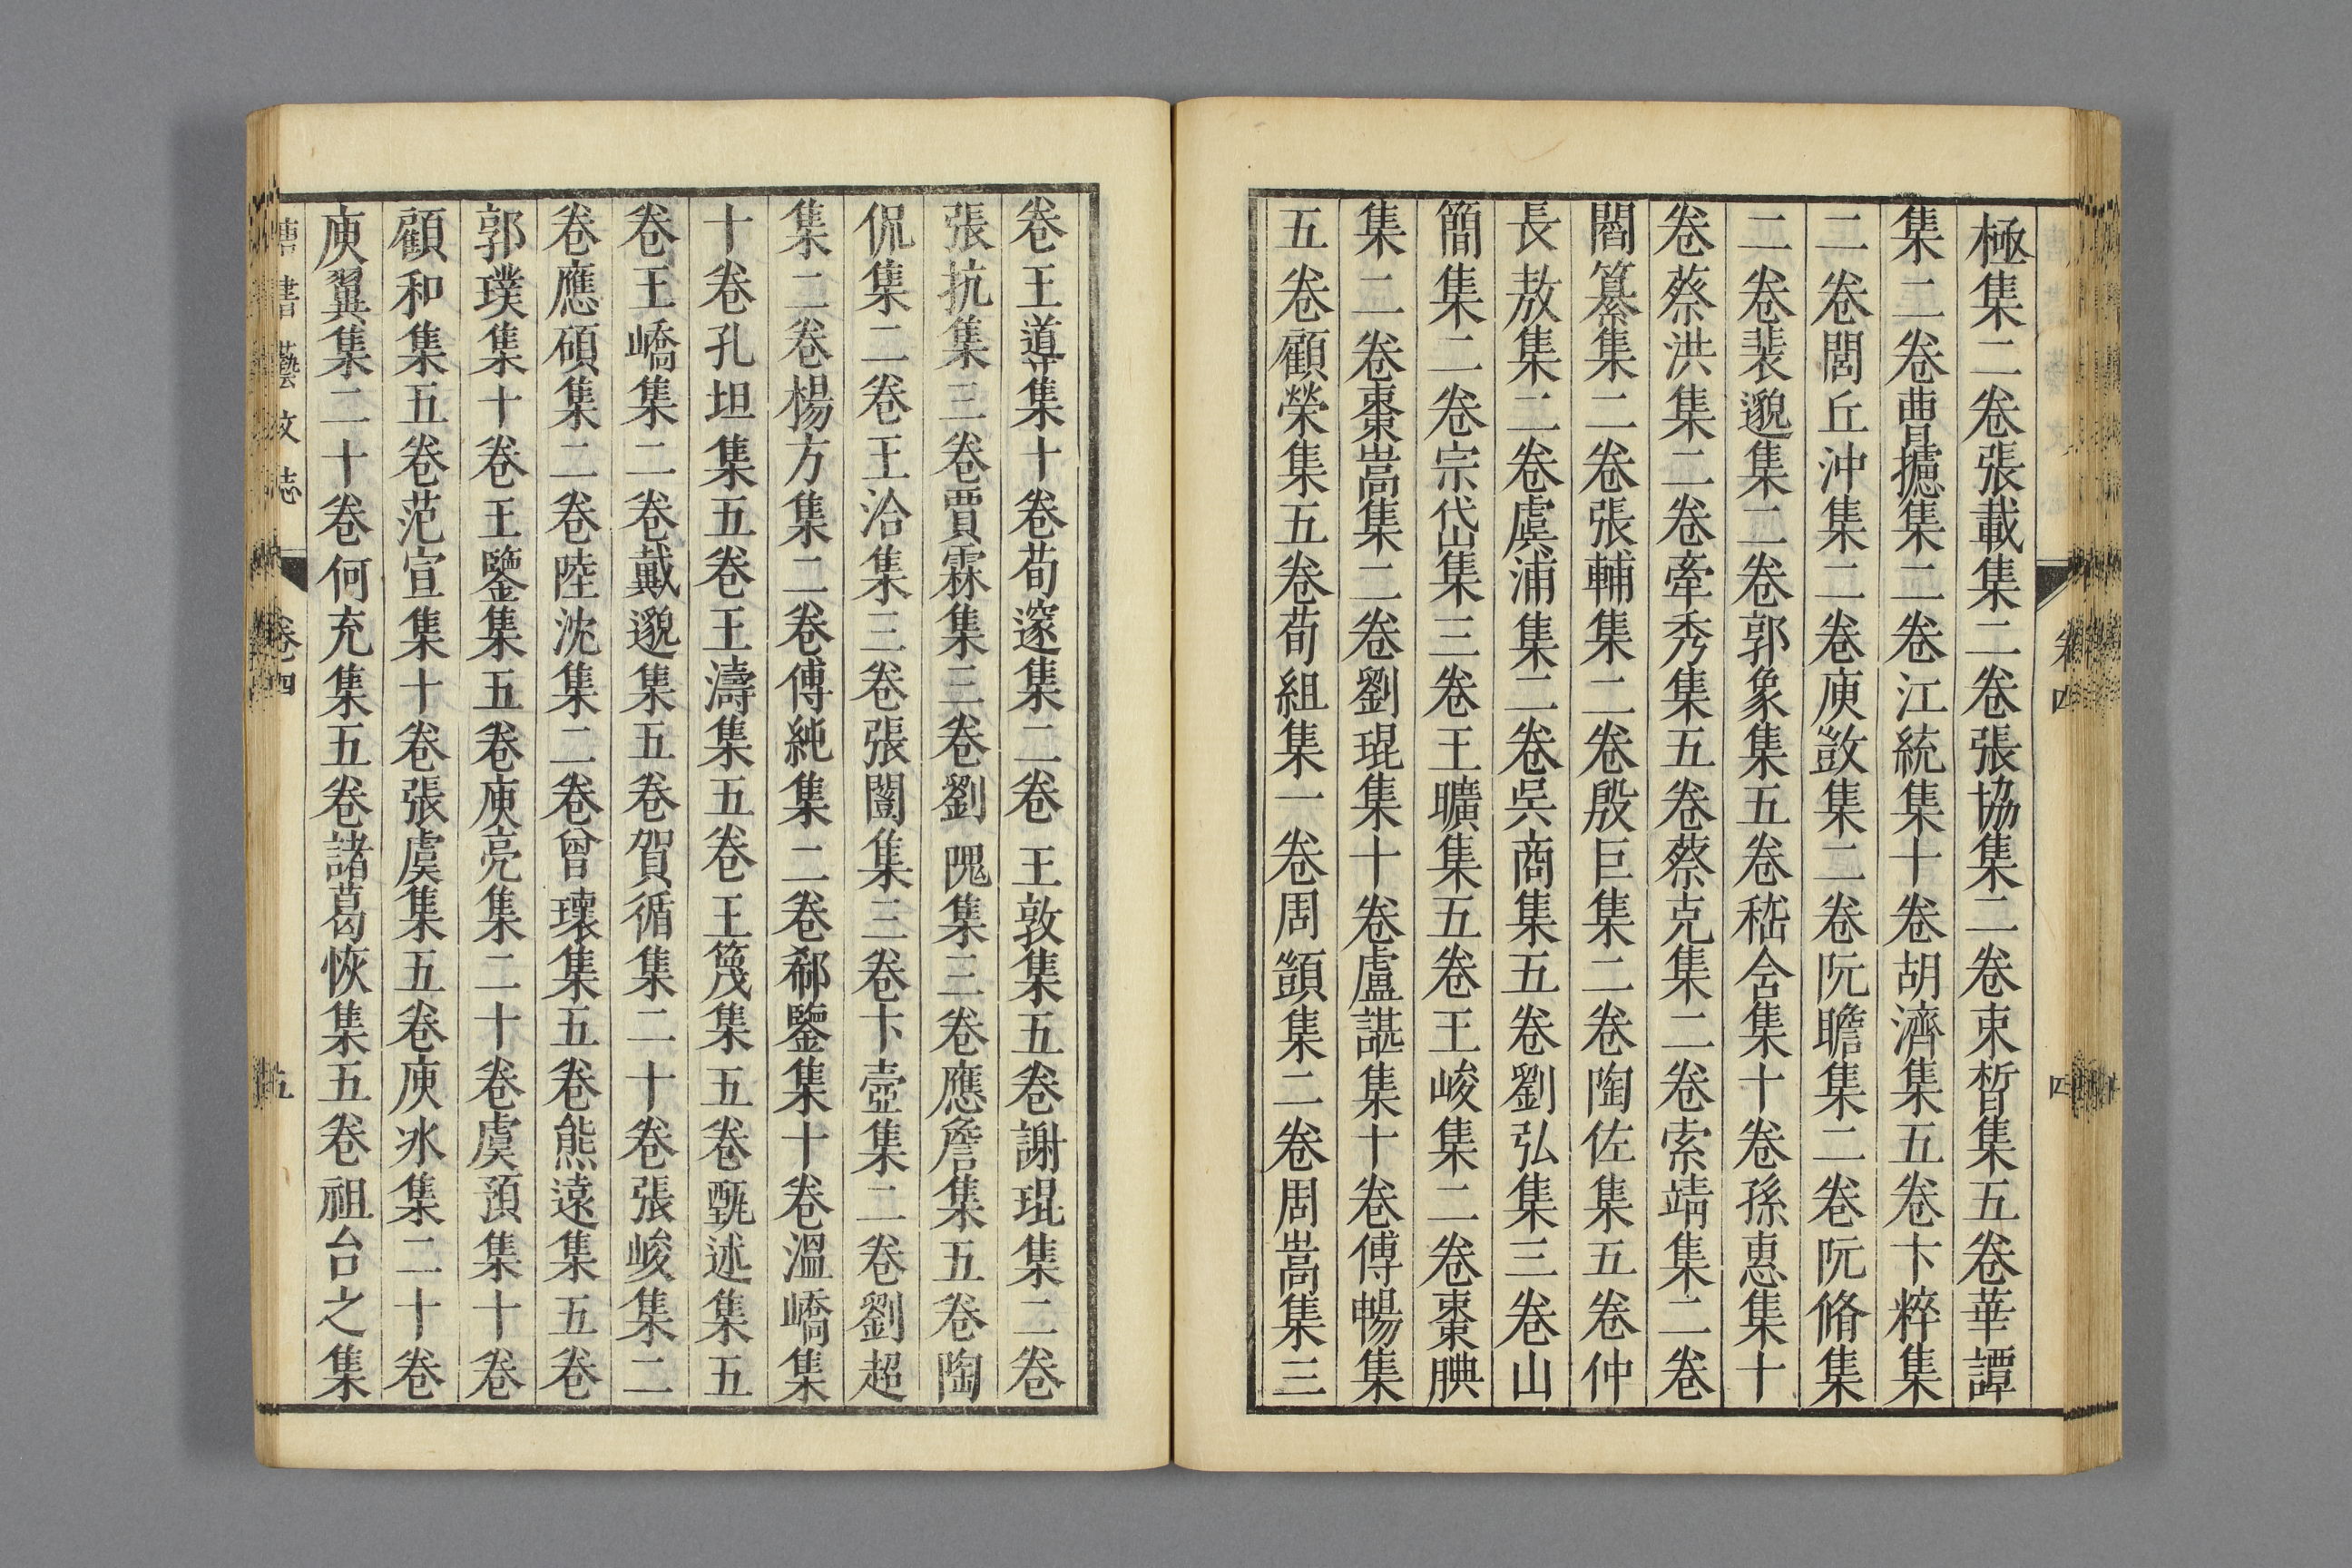 極集二卷張載集二卷張協集二卷束晳集五卷華譚
集二卷曹攄集二卷江統集十卷胡濟集五卷卞粹集
二卷閭丘沖集二卷庾敳集二卷阮瞻集二卷阮脩集
二卷裴邈集二卷郭象集五卷嵇含集十卷孫惠集十
卷蔡洪集二卷牽秀集五卷蔡克集二卷索靖集二卷
閻纂集二卷張輔集二卷殷巨集二卷陶佐集五卷仲
長敖集二卷虞浦集二卷吳商集五卷劉弘集三卷山
簡集二卷宗岱集三卷王曠集五卷王峻集二卷棗腆
集二卷棗嵩集二卷劉琨集十卷盧諶集十卷傅暢集
五卷顧榮集五卷荀組集一卷周顗集二卷周嵩集三
卷王導集十卷荀邃集二卷王敦集五卷謝琨集二卷
張抗集三卷賈霖集三卷劉隗集三卷應詹集五卷陶
侃集二卷王洽集三卷張闓集三卷卞壺集二卷劉超
集二卷楊方集二卷傅純集二卷郗鑒集十卷溫嶠集
十卷孔坦集五卷王濤集五卷王篾集五卷甄述集五
卷王嶠集二卷戴邈集五卷賀循集二十卷張峻集二
卷應碩集二卷陸沈集二卷曾瓌集五卷熊遠集五卷
郭璞集十卷王鑒集五卷庾亮集二十卷虞預集十卷
顧和集五卷范宣集十卷張虞集五卷庾冰集二十卷
庾翼集二十卷何充集五卷諸葛恢集五卷祖台之集
唐書藝文志 卷四 五